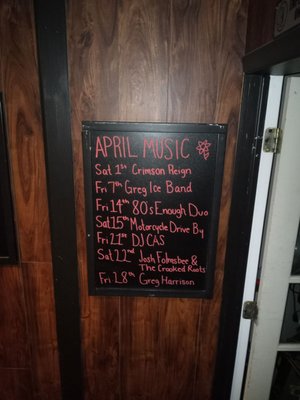 APRIL MUSIC
Sat 1st Crimson Reign
Fri 7th Greg Ice Band
Fri 14th 80's Enough Duo
Sat 15th Motorcycle Drive By
Fri 21st DJ CAS
Sat 22nd Josh Folmsbee &
The Crooked Roots
Fri 28th Greg Harrison